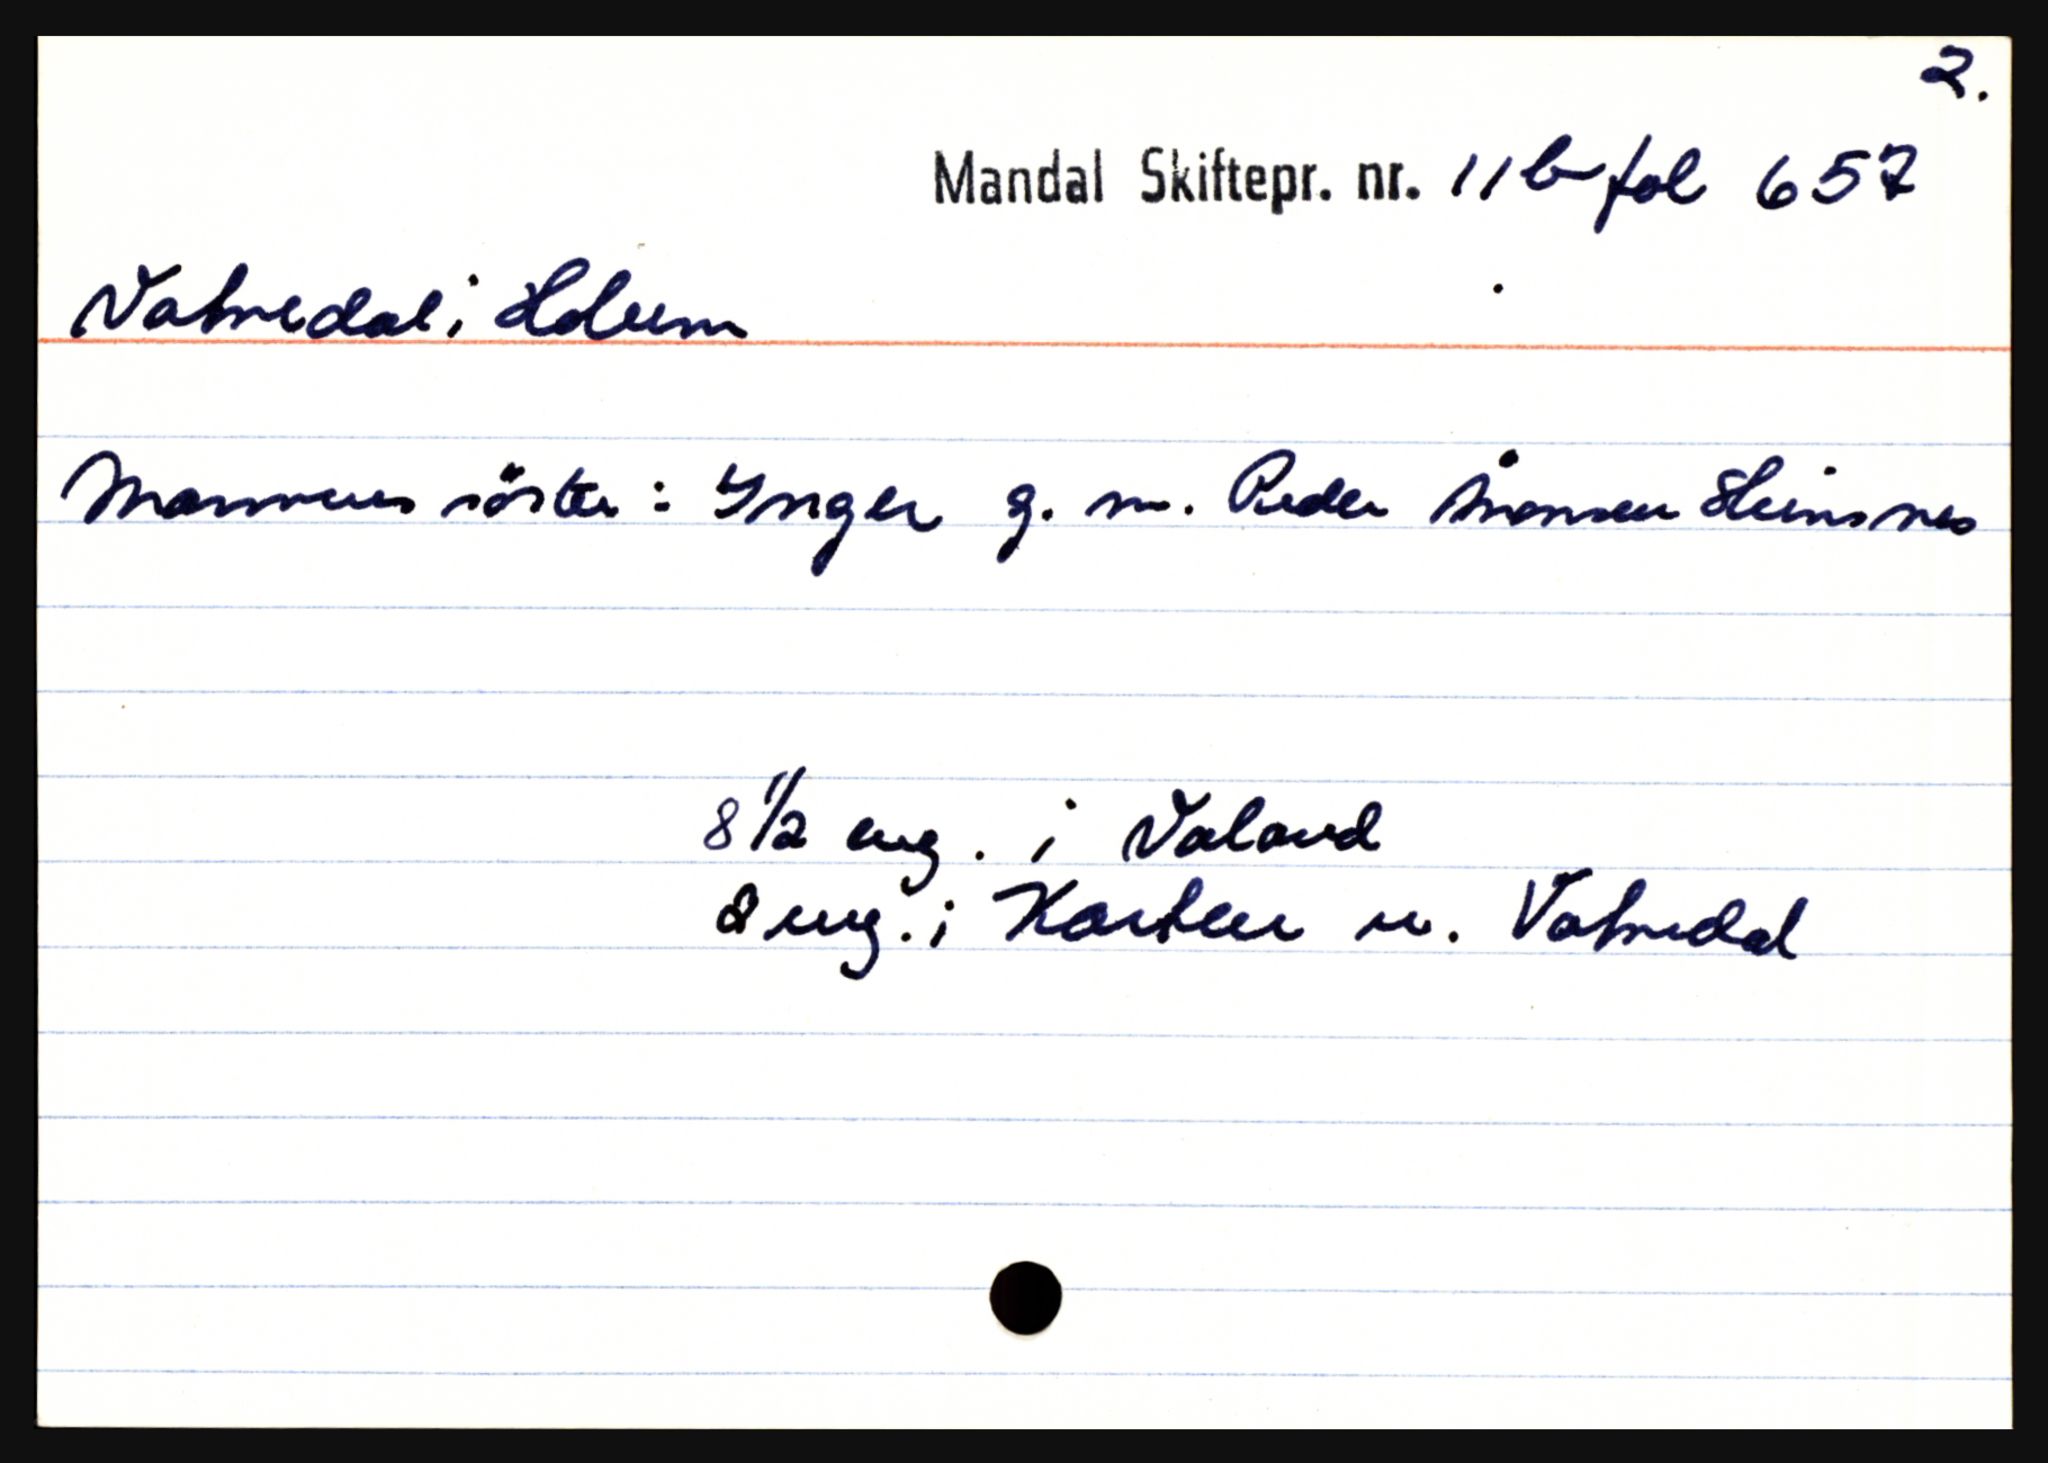 2.
Mandal Skiftepr. nr. 11b fol 657
Vatnedal i Holum
Mannens söster: Ynger g. m. Peder Ånonsen Heimsnes
8 1/2 eng. i Valand
2 eng. i Karten u. Vatnedal